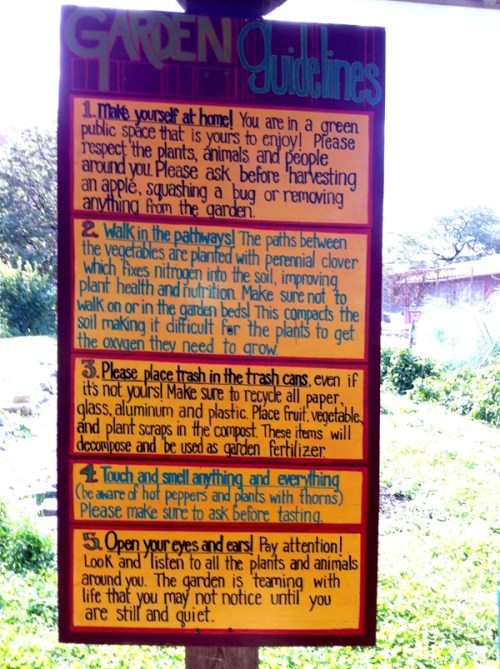 GARDEN
guidelines
1. Make yourself at home! You are in a green
public space that is yours to enjoy! Please
respect the plants, animals and people
around you. Please ask before harvesting
an apple, squashing a bug or removing
anything from the garden.
2. Walk in the pathways! The paths between
the vegetables are planted with perennial clover
which fixes nitrogen into the soil, improving
plant health and nutrition. Make sure not to
walk on or in the garden beds! This compacts the
soil making it difficult for the plants to get
the oxygen they need to grow.
3. Please place trash in the trash cans, even if
it's not yours! Make sure to recycle all paper,
glass, aluminum and plastic. Place fruit, vegetable,
and plant scraps in the compost. These items will
decompose and be used as garden fertilizer.
4. Touch and smell anything and everything
(be aware of hot peppers and plants with thorns)
Please make sure to ask before tasting.
5. Open your eyes and ears! Pay attention!
Look and listen to all the plants and animals
around you. The garden is teaming with
life that you may not notice until you
are still and quiet.